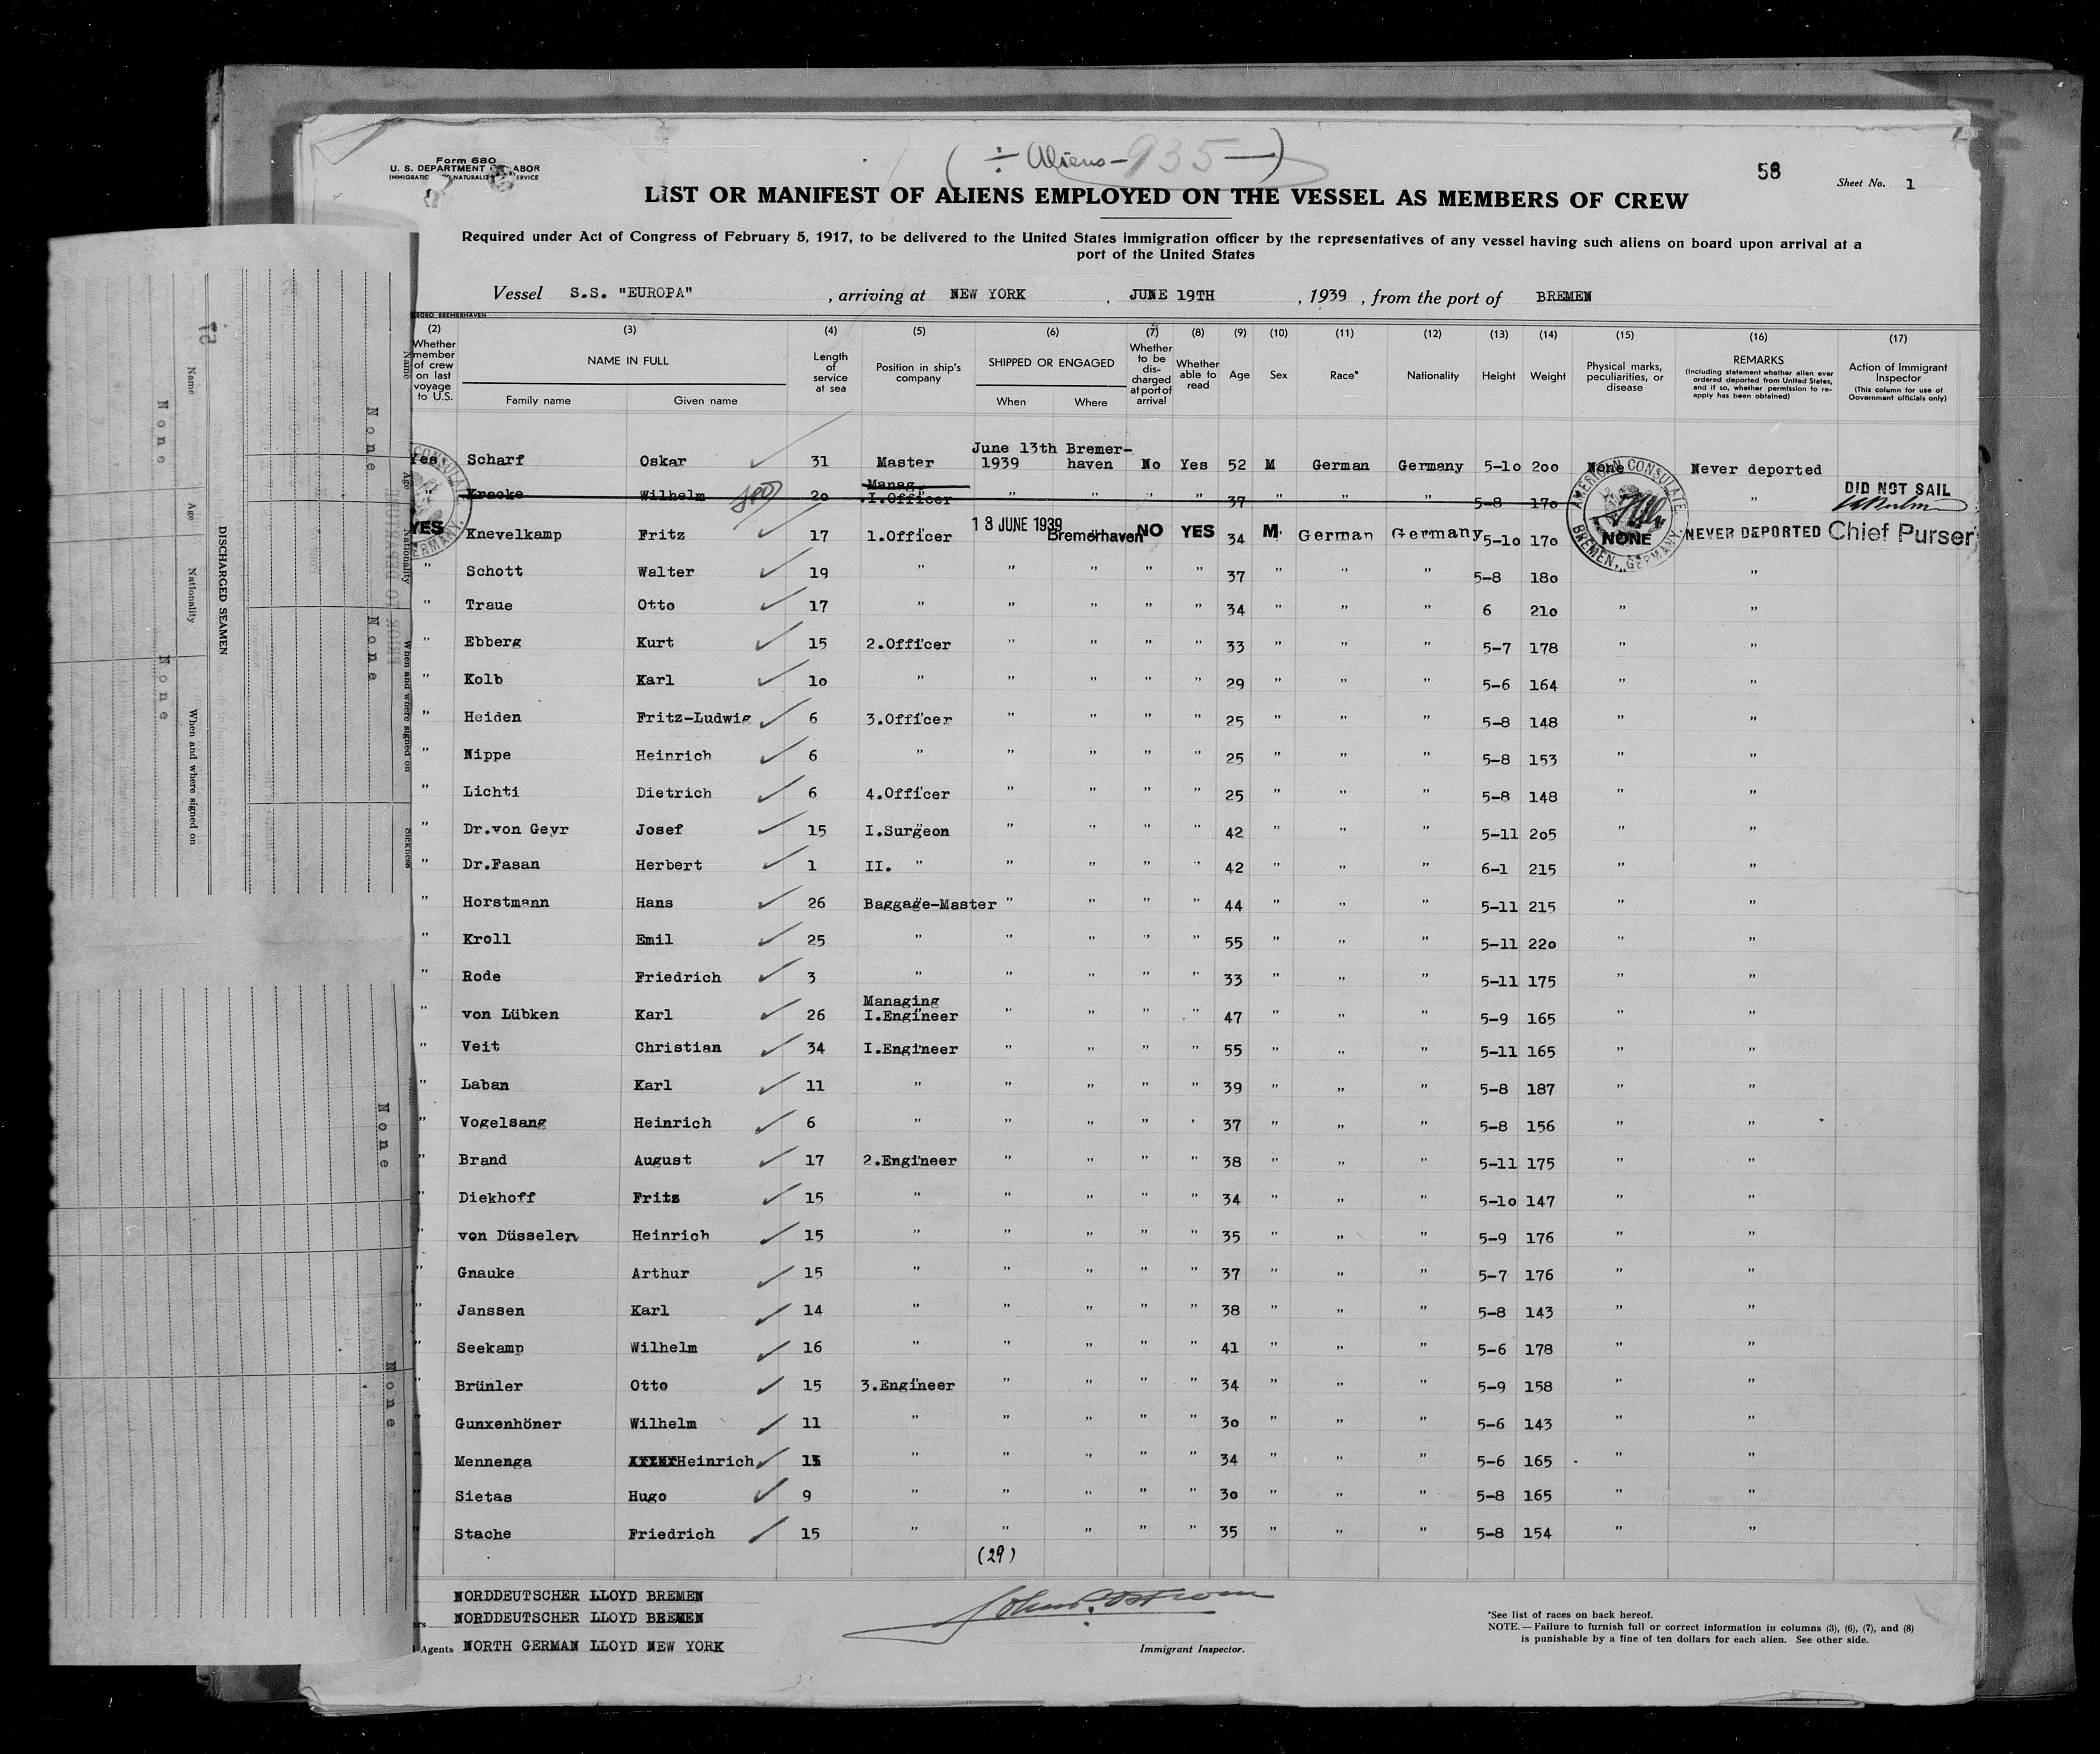 ( ÷ Aliens - 935 - )
Form 680
U. S. DEPARTMENT LABOR
NATURALIZ SERVICE
58
Sheet No. 1
LIST OR MANIFEST OF ALIENS EMPLOYED ON THE VESSEL AS MEMBERS OF CREW
Required under Act of Congress of February 5, 1917, to be delivered to the United States immigration officer by the representatives of any vessel having such aliens on board upon arrival at a
port of the United States
Vessel S.S. "EUROPA" , arriving at NEW YORK , JUNE 19TH , 1939 , from the port of BREMEN
(2) (3) (4) (5) (6) (7) (8) (9) (10) (11) (12) (13) (14) (15) (16) (17)
Whether member of crew on last voyage to U.S.
NAME IN FULL
Family name Given name
Length of service at sea
Position in ship's company
SHIPPED OR ENGAGED
When Where
Whether to be discharged at port of arrival
Whether able to read
Age Sex Race* Nationality Height Weight
Physical marks, peculiarities, or disease
REMARKS
(Including statement whether alien ever ordered deported from United States, and if so, whether permission to reapply has been obtained)
Action of Immigrant Inspector
(This column for use of Government officials only)
Yes Scharf Oskar 31 Master June 13th 1939 Bremer-haven No Yes 52 M German Germany 5-10 200 None Never deported
Kracke Wilhelm 20 Manag. I.Officer " " " " 37 " " " 5-8 170 " DID NOT SAIL
YES Knevelkamp Fritz 17 1.Officer 18 JUNE 1939 Bremerhaven NO YES 34 M. German Germany 5-10 170 NONE NEVER DEPORTED Chief Purser
" Schott Walter 19 " " " " " 37 " " " 5-8 180 "
" Traue Otto 17 " " " " " 34 " " " 6 210 " "
" Ebberg Kurt 15 2.Officer " " " " 33 " " " 5-7 178 " "
" Kolb Karl 10 " " " " " 29 " " " 5-6 164 " "
" Heiden Fritz-Ludwig 6 3.Officer " " " " 25 " " " 5-8 148 " "
" Nippe Heinrich 6 " " " " " 25 " " " 5-8 153 " "
" Lichti Dietrich 6 4.Officer " " " " 25 " " " 5-8 148 " "
" Dr.von Geyr Josef 15 I.Surgeon " " " " 42 " " " 5-11 205 " "
" Dr.Fasan Herbert 1 II. " " " " " 42 " " " 6-1 215 " "
" Horstmann Hans 26 Baggage-Master " " " " 44 " " " 5-11 215 " "
" Kroll Emil 25 " " " " " 55 " " " 5-11 220 " "
" Rode Friedrich 3 " " " " " 33 " " " 5-11 175 " "
" von Lübken Karl 26 Managing I.Engineer " " " " 47 " " " 5-9 165 " "
" Veit Christian 34 I.Engineer " " " " 55 " " " 5-11 165 " "
" Laban Karl 11 " " " " " 39 " " " 5-8 187 " "
" Vogelsang Heinrich 6 " " " " " 37 " " " 5-8 156 " "
" Brand August 17 2.Engineer " " " " 38 " " " 5-11 175 " "
" Diekhoff Fritz 15 " " " " " 34 " " " 5-10 147 " "
" von Düsselen Heinrich 15 " " " " " 35 " " " 5-9 176 " "
" Gnauke Arthur 15 " " " " " 37 " " " 5-7 176 " "
" Janssen Karl 14 " " " " " 38 " " " 5-8 143 " "
" Seekamp Wilhelm 16 " " " " " 41 " " " 5-6 178 " "
" Brünler Otto 15 3.Engineer " " " " 34 " " " 5-9 158 " "
" Gunxenhöner Wilhelm 11 " " " " " 30 " " " 5-6 143 " "
" Mennenga Heinrich 15 " " " " " 34 " " " 5-6 165 " "
" Sietas Hugo 9 " " " " " 30 " " " 5-8 165 " "
" Stache Friedrich 15 " " " " " 35 " " " 5-8 154 " "
(29)
AMERICAN CONSULATE
BREMEN, GERMANY
NORDDEUTSCHER LLOYD BREMEN
NORDDEUTSCHER LLOYD BREMEN
Agents NORTH GERMAN LLOYD NEW YORK
Immigrant Inspector.
*See list of races on back hereof.
NOTE.—Failure to furnish full or correct information in columns (3), (6), (7), and (8)
is punishable by a fine of ten dollars for each alien. See other side.
75
Name Age Nationality When and where signed on
DISCHARGED SEAMEN
Name Age Nationality When and where signed on Sickness
None
None
None
None
None
None